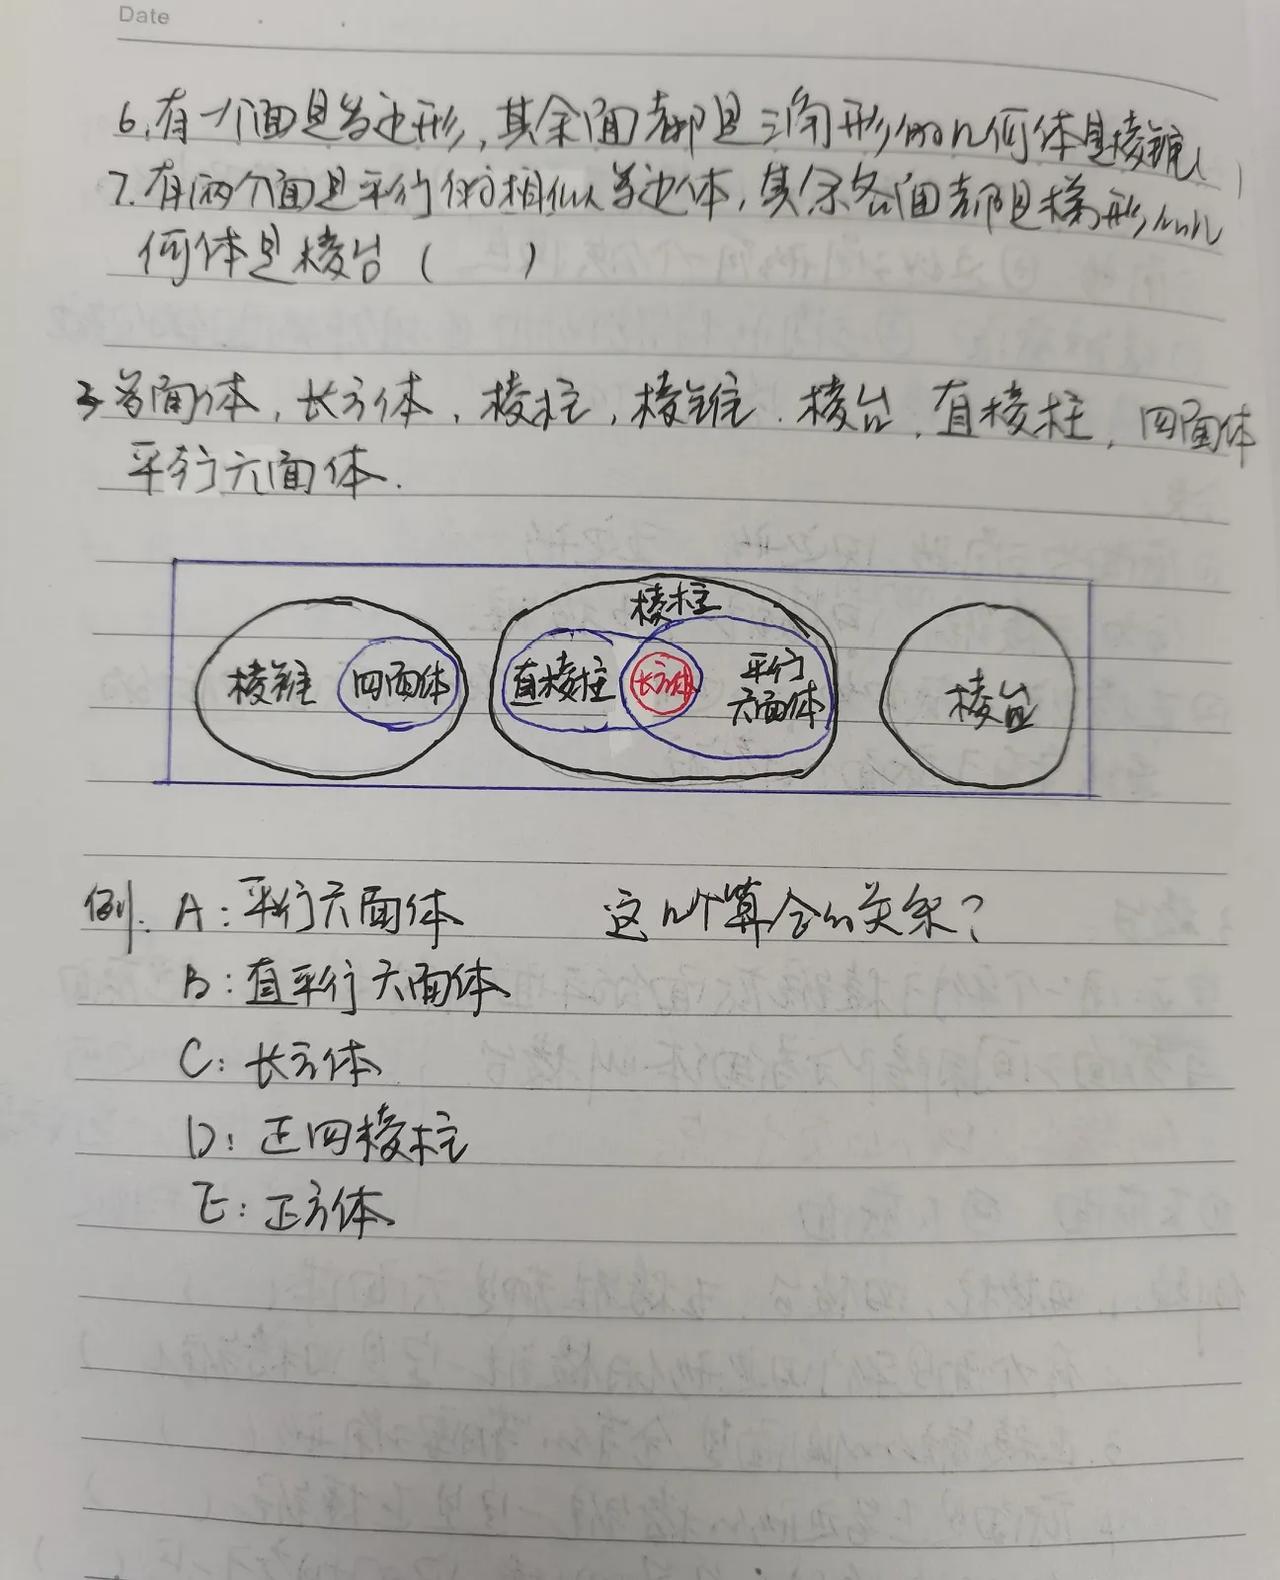 Date
6.有一个面是多边形,其余面都是三角形的几何体是棱锥(
7.有两个面是平行的相似多边体,其余各面都是梯形的几
何体是棱台( )
3.多面体,长方体,棱柱,棱锥.棱台,直棱柱,四面体
平行六面体.
棱柱
棱锥 四面体 直棱柱 长方体 平行 棱台
六面体
例. A:平行六面体 这几个集合的关系?
B:直平行六面体
C:长方体
D:正四棱柱
E:正方体